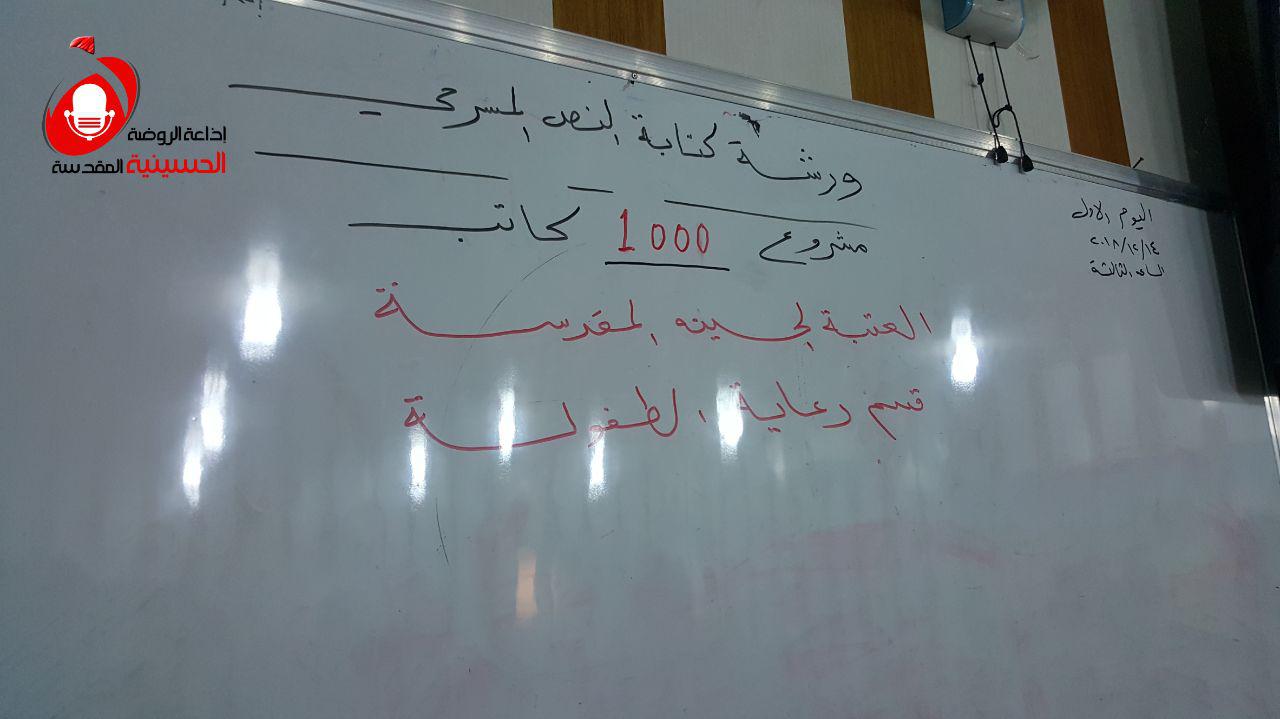 إذاعة الروضة
الحسينية المقدسة
ورشة كتابة النص المسرحي
مشروع 1000 كاتب
العتبة الحسينه المقدسة
قسم رعاية الطفولة
اليوم الاول
٢٠١٨/١٢/١٤
الساعة الثالثة